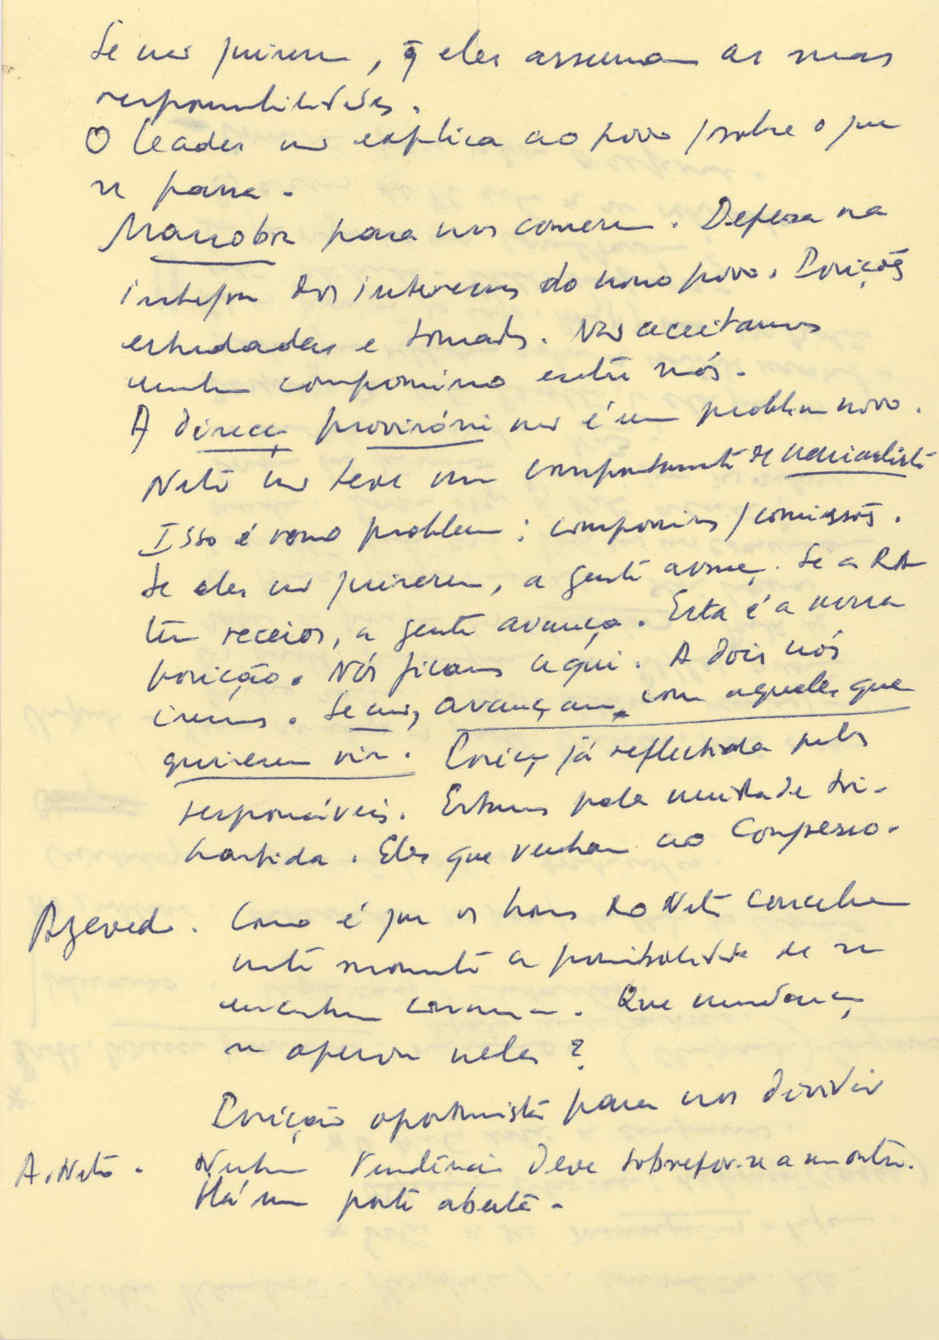 Se não quiserem, q̃ eles assumam as suas
responsabilidades.
O leader não explica ao povo p/sobre o que
se passa.
Manobra para nos comerem. Defesa na
íntegra dos interesses do nosso povo. Posições
estudadas e tomadas. Não aceitamos
nenhum compromisso entre nós.
A direcç provisória não é um problema novo.
Neto não teve um comportamento de nacionalista
Isso é vosso problema: compromisso/comissões.
Se eles não quiserem, a gente avança. Se a RA
têm receios, a gente avança. Esta é a nossa
posição. Nós ficamos aqui. A dois nós
iremos. Se não, avançam com aqueles que
quiserem vir. Posiç já reflectida pelos
responsáveis. Estamos pela unidade tri-
partida. Eles que venham ao Congresso.
Azevedo. Como é que os homens do Neto concebem
neste momento a possibilidade de se
Que mudança
se operou neles?
Posição oportunista para nos dividir
A. Neto. Nenhuma tendência deve sobrepor-se a uma outra.
Há uma porta aberta.